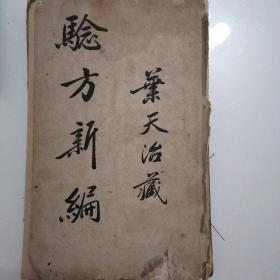 驗方新編
葉天治藏